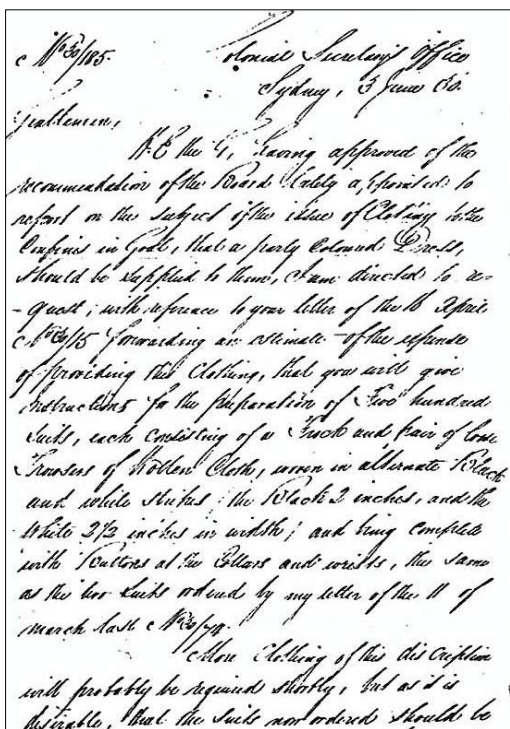 No 30/185. Colonial Secretary's Office
Sydney, 3 June 30.
Gentlemen,
H.E the G, having approved of the
recommendation of the Board lately appointed to
report on the subject of the issue of Clothing to the
Confines in Goal, that a party Coloured Dress,
should be supplied to them, I am directed to re-
-quest, with reference to your letter of the 16 April
No 30/15 forwarding an estimate of the expense
of providing this Clothing, that you will give
instructions for the preparation of Five hundred
Suits, each consisting of a Frock and pair of loose
Trowsers of Wollen Cloth, woven in alternate Black
and white stripes; the Black 2 inches, and the
White 2½ inches in width; and being complete
with Buttons at the Collars and wrists, the same
as the two Suits ordered by my letter of the 11 of
march last No 30/74.
More Clothing of this discription
will probably be required shortly, but as it is
desirable, that the suits now ordered should be